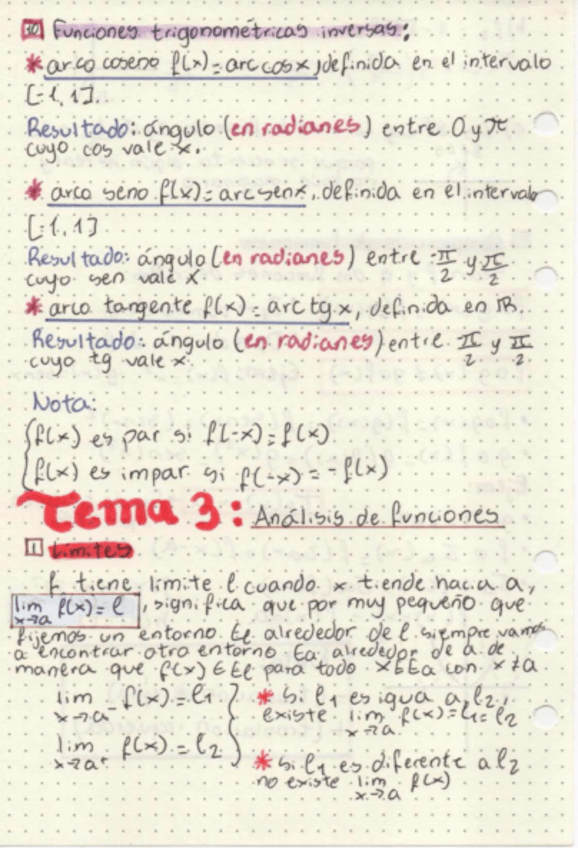 10 Funciones trigonométricas inversas:
* arco coseno f(x)=arc cos x, definida en el intervalo
[-1, 1].
Resultado: ángulo (en radianes) entre 0 y π
cuyo cos vale x.
* arco seno f(x)=arcsenx, definida en el intervalo
[-1, 1]
Resultado: ángulo (en radianes) entre -π/2 y π/2
cuyo sen vale x
* arco tangente f(x)=arc tg x, definida en ℝ.
Resultado: ángulo (en radianes) entre π/2 y π/2
cuyo tg vale x.
Nota:
f(x) es par si f(-x)=f(x)
f(x) es impar si f(-x)=-f(x)
Tema 3: Análisis de funciones
1 Límites
f tiene límite l cuando x tiende hacia a,
lim x→a f(x)=l, significa que por muy pequeño que
fijemos un entorno El alrededor de l siempre vamos
a encontrar otro entorno Ea alrededor de a de
manera que f(x)∈El para todo x∈Ea con x≠a
lim x→a⁻ f(x)=l₁
lim x→a⁺ f(x)=l₂
* Si l₁ es igua a l₂,
existe lim x→a f(x)=l₁=l₂
* si l₁ es diferente a l₂
no existe lim x→a f(x)